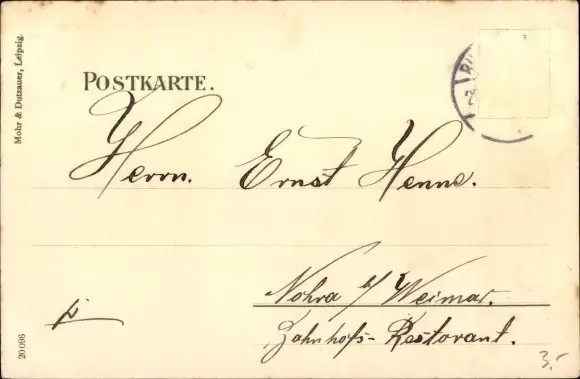 Mohr & Dutzauer, Leipzig.
POSTKARTE.
Herrn. Ernst Henne.
Nohra b/ Weimar.
Bahnhofs-Restorant.
20096
3.-